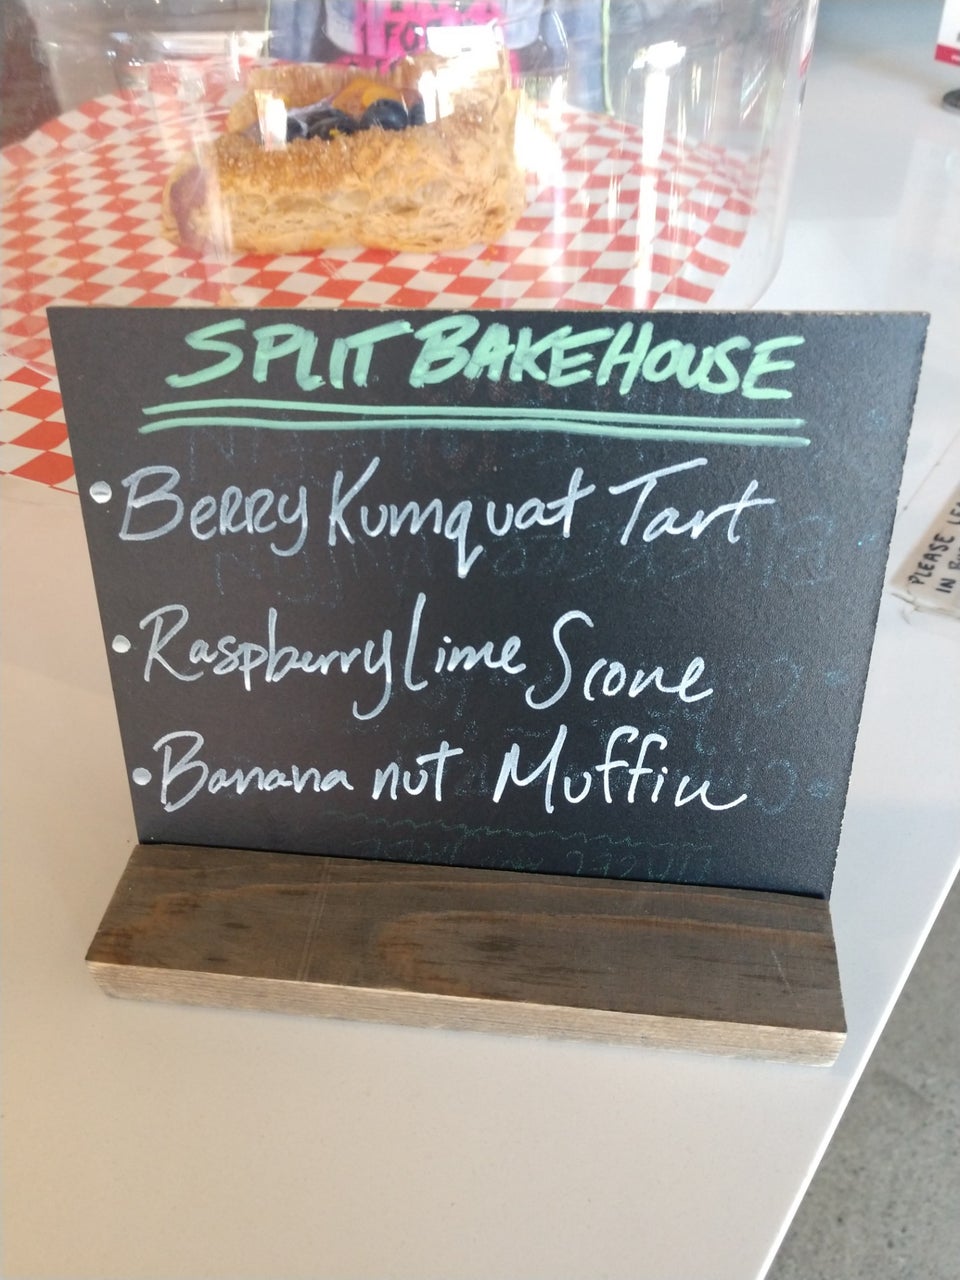 SPLIT BAKEHOUSE
• Berry Kumquat Tart
• Raspberry Lime Scone
• Banana nut Muffin
PLEASE
IN